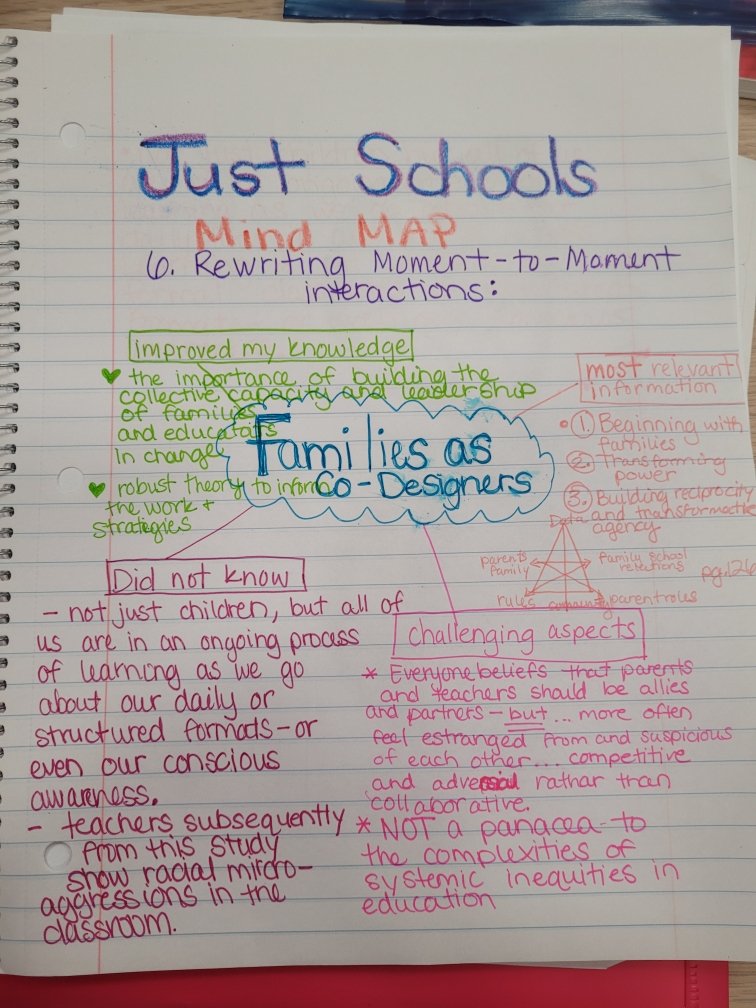 Just Schools
Mind MAP
6. Rewriting Moment-to-Moment
interactions:
improved my knowledge
♥ the importance of building the
collective capacity and leadership
of families
and educators
in change
♥ robust theory to inform
the work +
strategies
most relevant
information
1. Beginning with
families
2. Transforming
power
3. Building reciprocity
and transformative
agency
Families as
Co-Designers
Data
parents
family
family school
relations
rules
community
parent roles
pg.126
Did not know
- not just children, but all of
us are in an ongoing process
of learning as we go
about our daily or
structured formats-or
even our conscious
awareness.
- teachers subsequently
from this study
show radial micro-
aggressions in the
classroom.
challenging aspects
* Everyone beliefs that parents
and teachers should be allies
and partners - but... more often
feel estranged from and suspicious
of each other... competitive
and rathar than
collaborative.
* NOT a panacea to
the complexities of
systemic inequities in
education